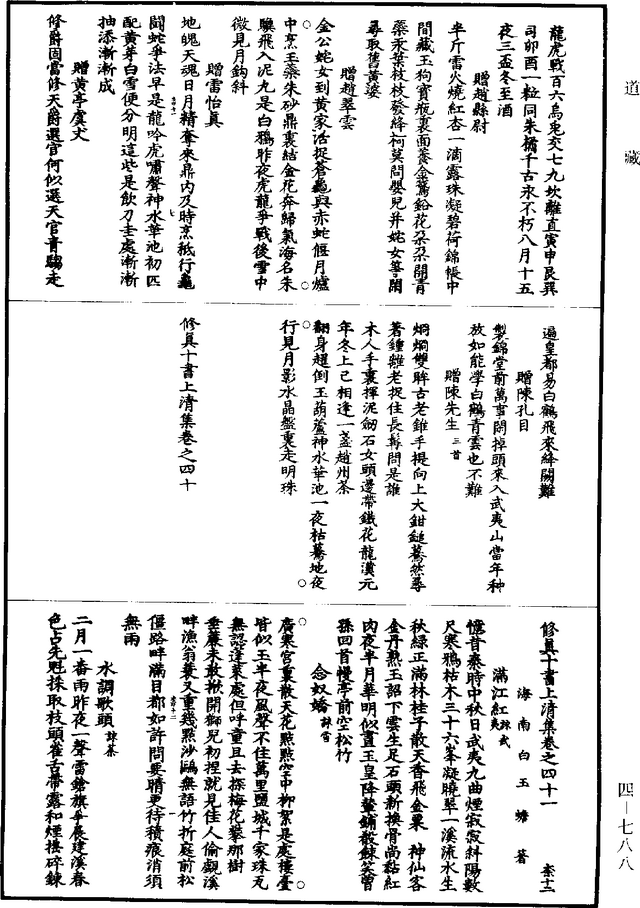 道藏
龍虎戰百六烏兔交七九坎離直寅申艮巽
司卯酉一粒同朱橘千古永不朽八月十五
夜三盃冬至酒
贈趙縣尉
半斤雷火燒紅杏一滴露珠凝碧荷錦帳中
間藏玉狗寶瓶裏面養金鵝鉛花朵朵開青
蘂汞葉枝枝發絳柯莫問嬰兒并姹女等閑
尋取舊黃婆
贈趙翠雲
金公姹女到黃家活捉蒼龜與赤蛇偃月爐
中烹玉蘂朱砂鼎裏結金花奔歸氣海名朱
驥飛入泥丸是白鴉昨夜虎龍爭戰後雪中
微見月鈎斜
贈雷怡真
地魄天魂日月精奪來鼎內及時烹秖行龜
鬪蛇爭法早是龍吟虎嘯聲神水華池初匹
配黃芽白雪便分明這些是飲刀圭處漸漸
抽添漸漸成
贈黃亭虞丈
修爵固當修天爵選官何似選天官青騮走
遍皇都易白鶴飛來絳闕難
贈陳孔目
製錦堂前萬事閑掉頭來入武夷山當年种
放如能學白鶴青雲也不難
贈陳先生三首
烱烱雙眸古老錐手提向上大鉗鎚驀然尋
著鍾離老捉住長髯問是誰
木人手裏揮泥劒石女頭邊帶鐵花龍漢元
年冬上已相逢一盞趙州茶
翻身趯倒玉葫蘆神水華池一夜枯驀地夜
行見月影水晶盤裏走明珠
修真十書上清集卷之四十
修真十書上清集卷之四十一
海南白玉蟾著
滿江紅詠武夷
憶昔秦時中秋日武夷九曲煙寂寂斜陽數
尺寒鴉枯木三十六峯凝曉翠一溪流水生
秋綠正滿林桂子散天香飛金粟 神仙客
金丹熟玉詔下雲生足石頭新換骨尚黏紅
肉夜半月華明似晝玉皇降輦鋪散餗笑曾
孫回首幔亭前空松竹
念奴嬌詠雪
廣寒宮裏散天花點點空中柳絮是處樓臺
皆似玉半夜風聲不住萬里鹽城千家珠瓦
無認蓬萊處但呼童且去探梅花攀那樹
垂簾未敢揪開獅兒初捏就見佳人偷覷溪
畔漁翁蓑又重幾點沙鷗無語竹折庭前松
僵路畔滿目都如許問要晴更待積痕消須
無雨
水調歌頭詠茶
二月一番雨昨夜一聲雷鎗旗爭展建溪春
色占先魁採取枝頭雀舌帶露和煙擣碎鍊
四—七八八